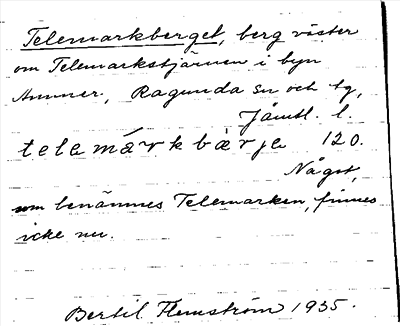 Telemarkberget, berg väster
om Telemarkstjärnen i byn
Ammer, Ragunda sn och tg,
Jämtl. l.
telemárkbærje 120.
Något,
som benämnes Telemarken, finnes
icke nu.
Bertil Flemström 1935.